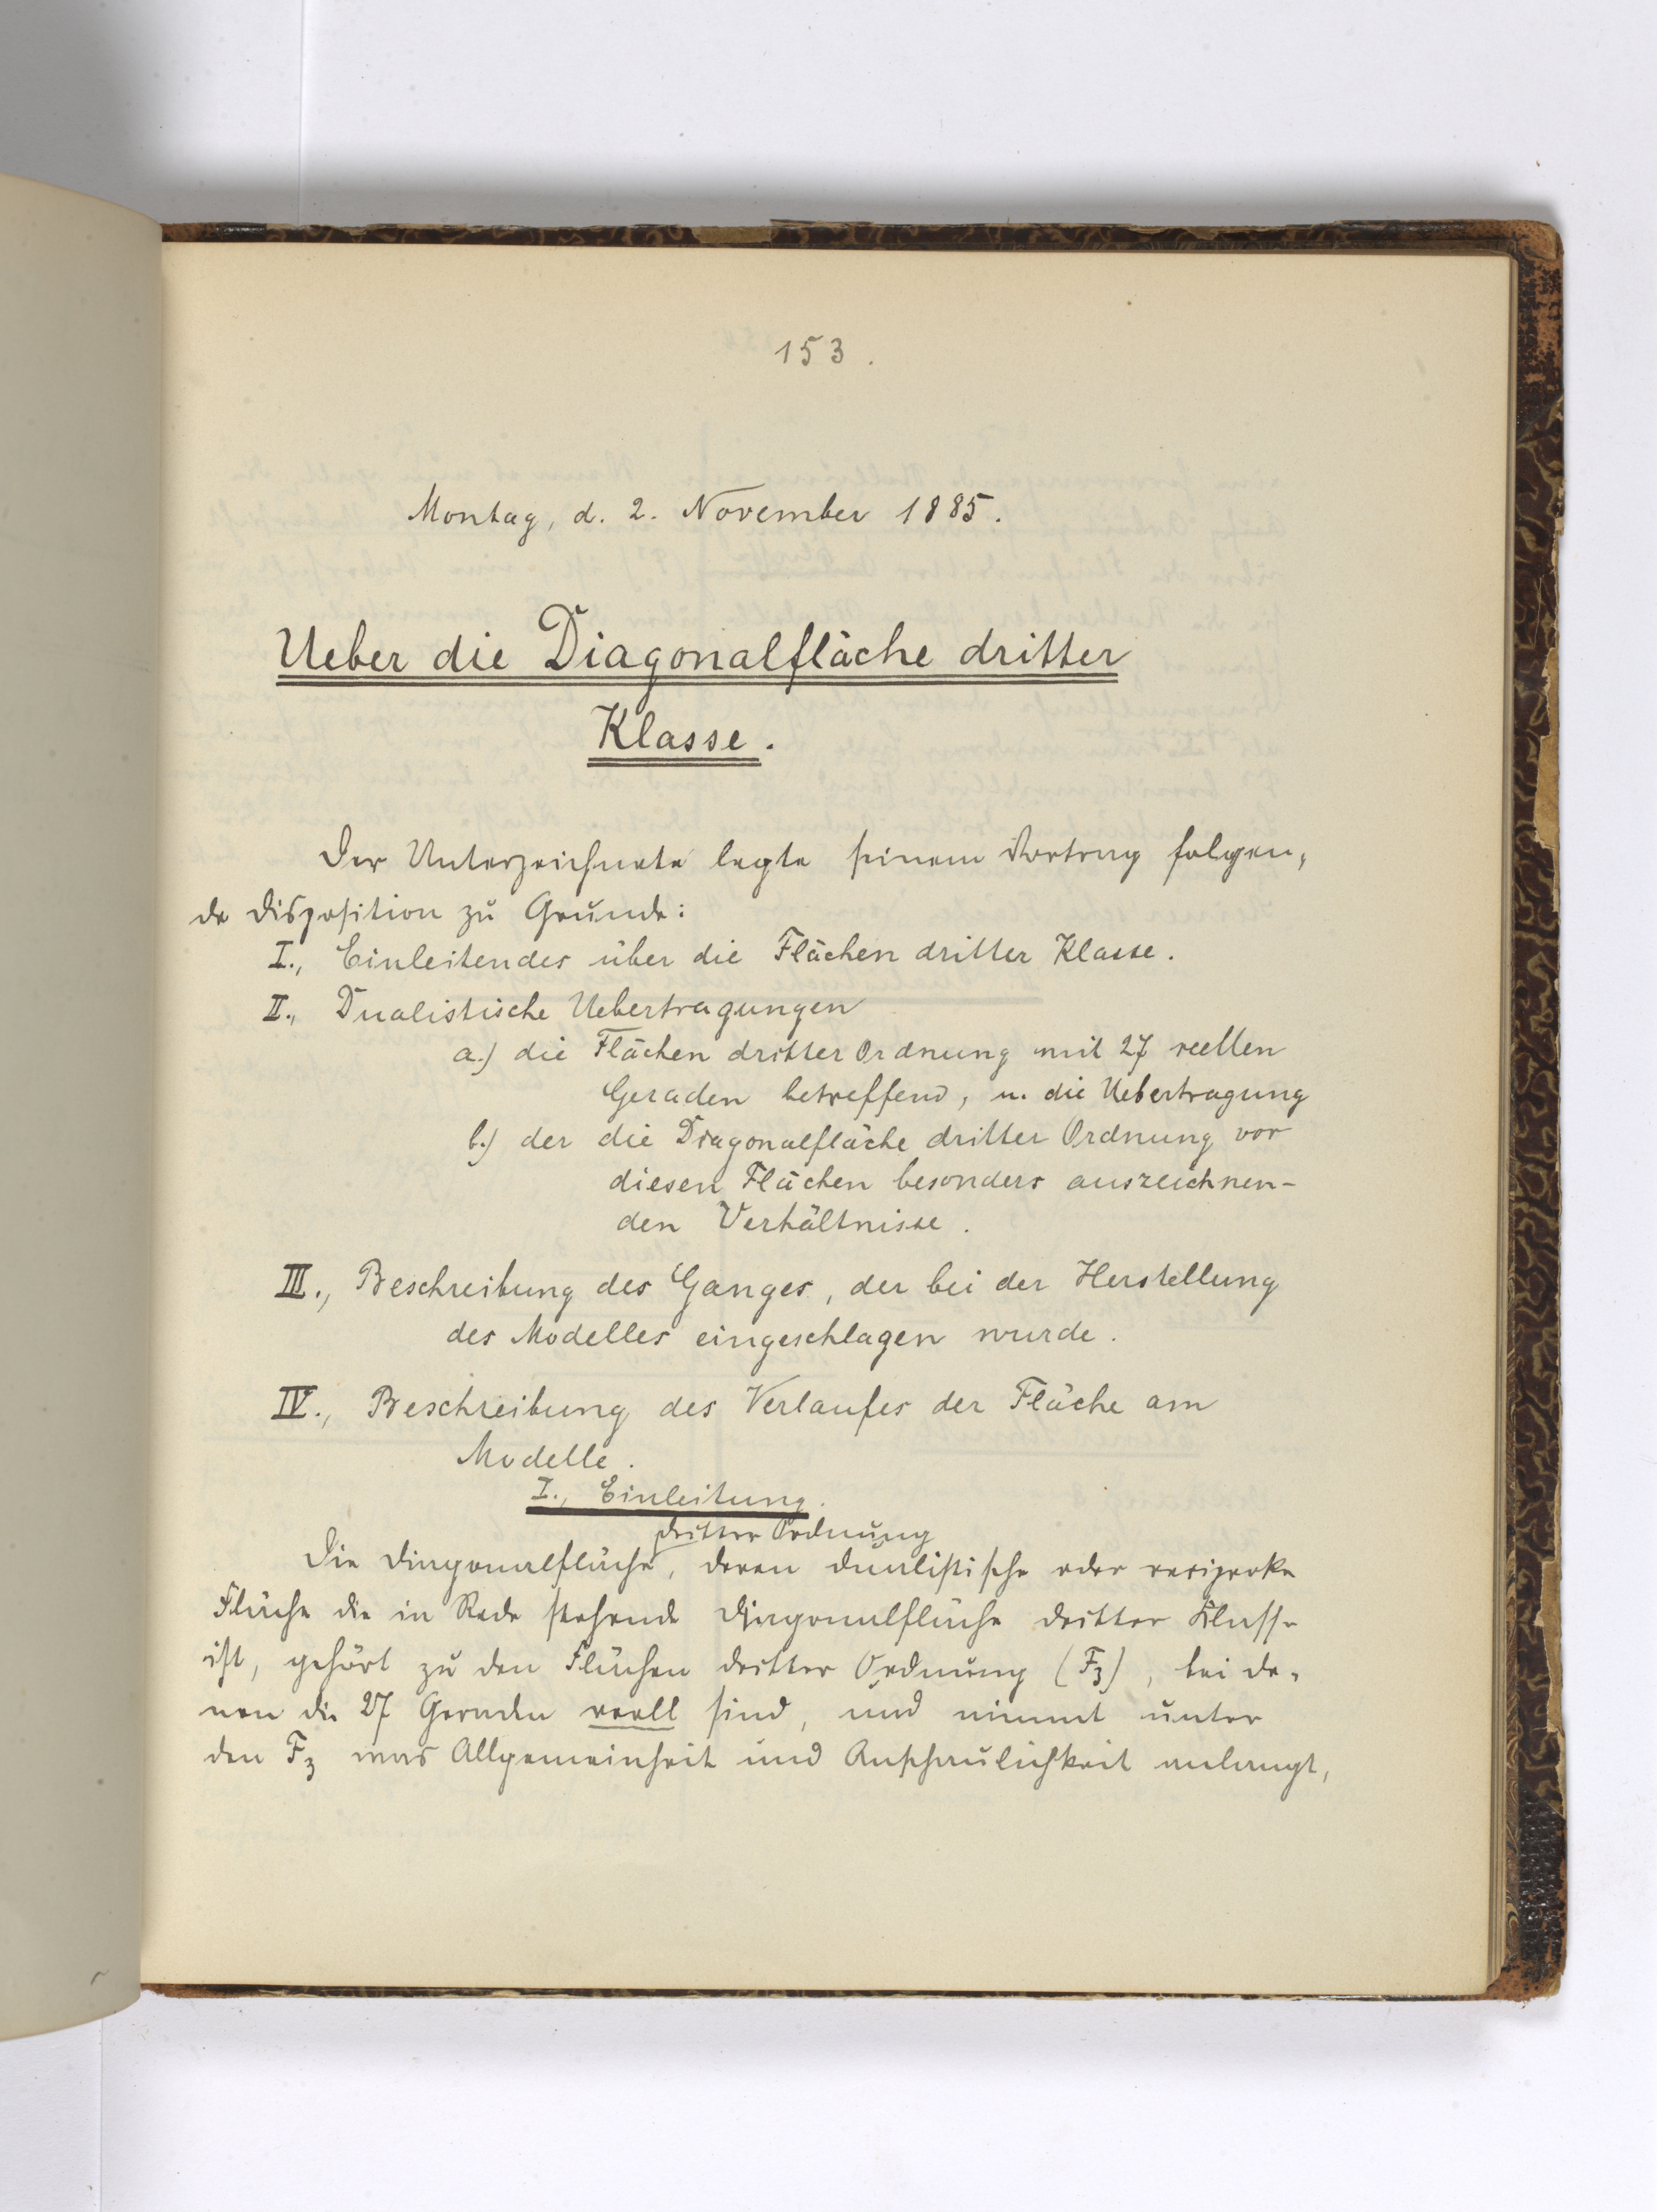 153.
Montag, d. 2. November 1885.
Ueber die Diagonalfläche dritter
Klasse.
Der Unterzeichnete legte seinem Vortrag folgen-
de Disposition zu Grunde:
I., Einleitendes über die Flächen dritter Klasse.
II., Dualistische Uebertragungen
a.) die Flächen dritter Ordnung mit 27 reellen
Geraden betreffend, u. die Uebertragung
b.) der die Diagonalfläche dritter Ordnung vor
diesen Flächen besonders auszeichnen-
den Verhältnisse.
III., Beschreibung des Ganges, der bei der Herstellung
des Modelles eingeschlagen wurde.
IV., Beschreibung des Verlaufes der Fläche am
Modelle.
I., Einleitung.
dritter Ordnung
Die Diagonalfläche, deren dualistische oder reciproke
Fläche die in Rede stehende Diagonalfläche dritter Klasse
ist, gehört zu den Flächen dritter Ordnung (F3), bei de-
nen die 27 Geraden reell sind, und nimmt unter
den F3 was Allgemeinheit und Anschaulichkeit anlangt,